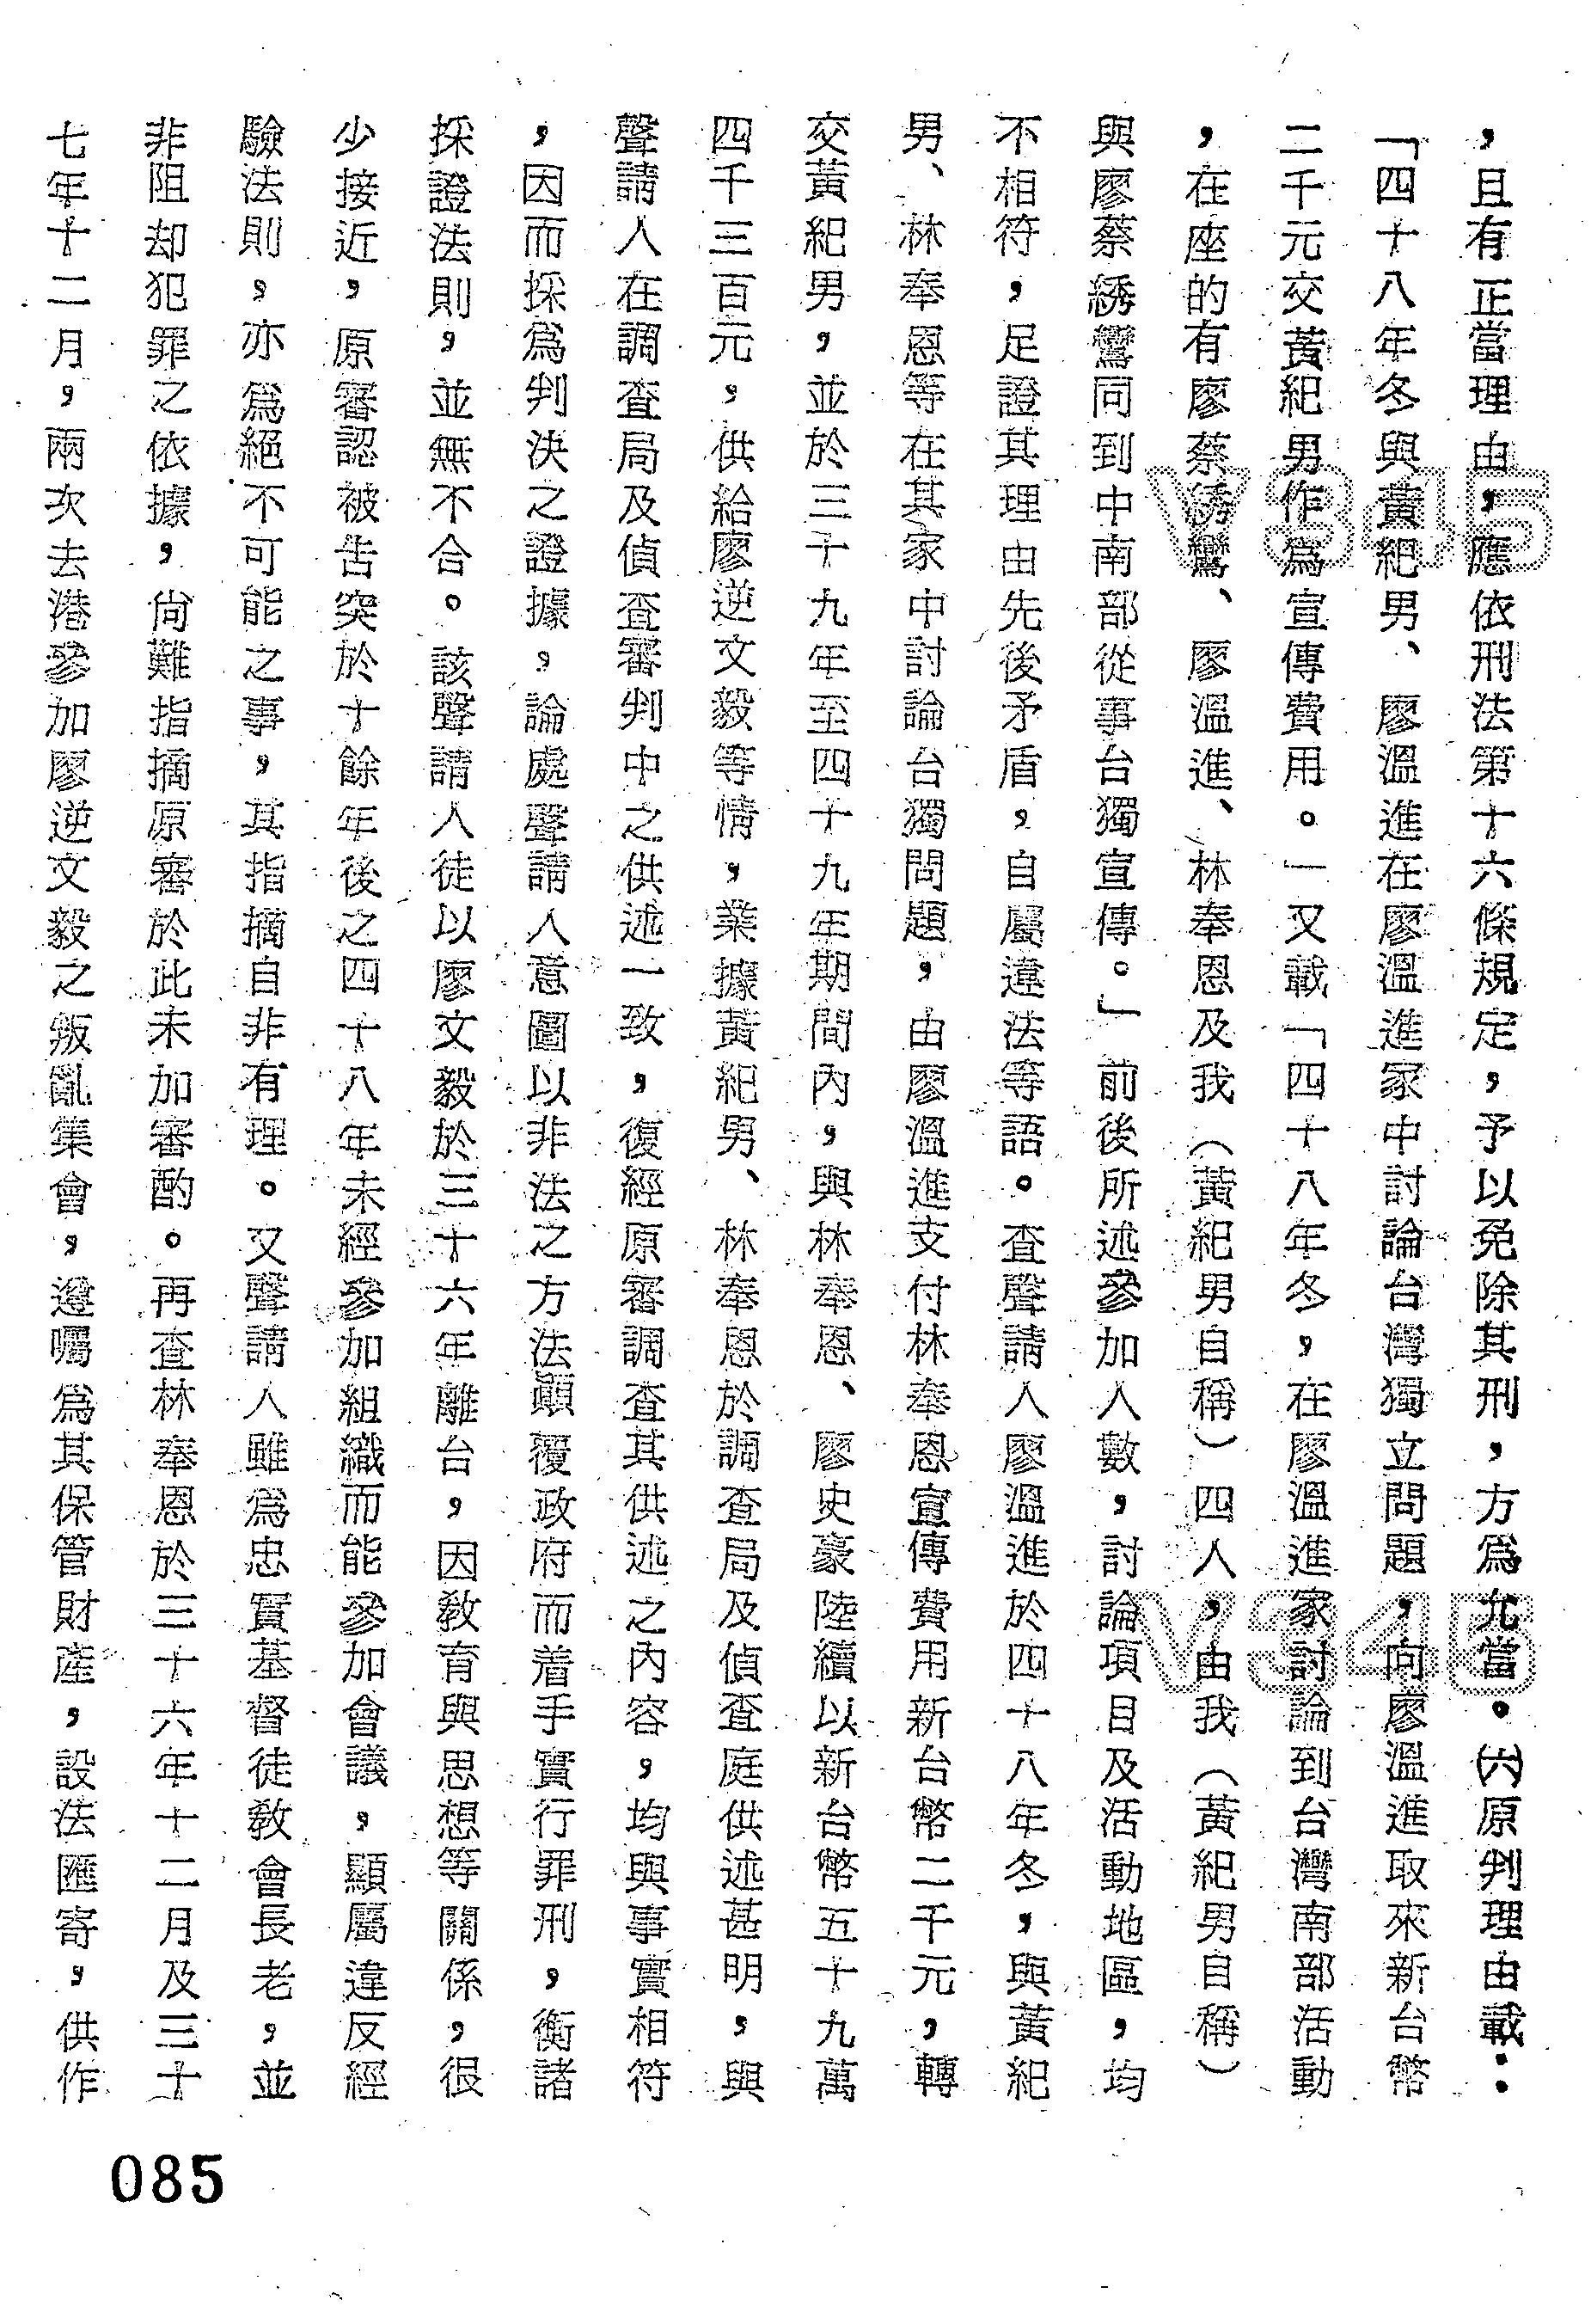 ，且有正當理由，應依刑法第十六條規定，予以免除其刑，方爲允當。㈥原判理由載：
「四十八年冬與黃紀男、廖溫進在廖溫進家中討論台灣獨立問題，向廖溫進取來新台幣
二千元交黃紀男作爲宣傳費用。」又載「四十八年冬，在廖溫進家討論到台灣南部活動
，在座的有廖蔡綉鸞、廖溫進、林奉恩及我（黃紀男自稱）四人，由我（黃紀男自稱）
與廖蔡綉鸞同到中南部從事台獨宣傳。」前後所述參加人數，討論項目及活動地區，均
不相符，足證其理由先後矛盾，自屬違法等語。查聲請人廖溫進於四十八年冬，與黃紀
男、林奉恩等在其家中討論台獨問題，由廖溫進支付林奉恩宣傳費用新台幣二千元，轉
交黃紀男，並於三十九年至四十九年期間內，與林奉恩、廖史豪陸續以新台幣五十九萬
四千三百元，供給廖逆文毅等情，業據黃紀男、林奉恩於調查局及偵查庭供述甚明，與
聲請人在調查局及偵查審判中之供述一致，復經原審調查其供述之內容，均與事實相符
，因而採爲判決之證據，論處聲請人意圖以非法之方法顚覆政府而着手實行罪刑，衡諸
採證法則，並無不合。該聲請人徒以廖文毅於三十六年離台，因教育與思想等關係，很
少接近，原審認被告突於十餘年後之四十八年未經參加組織而能參加會議，顯屬違反經
驗法則，亦爲絕不可能之事，其指摘自非有理。又聲請人雖爲忠實基督徒教會長老，並
非阻却犯罪之依據，尙難指摘原審於此未加審酌。再查林奉恩於三十六年十二月及三十
七年十二月，兩次去港參加廖逆文毅之叛亂集會，遵囑爲其保管財產，設法匯寄，供作
085
V345
V345